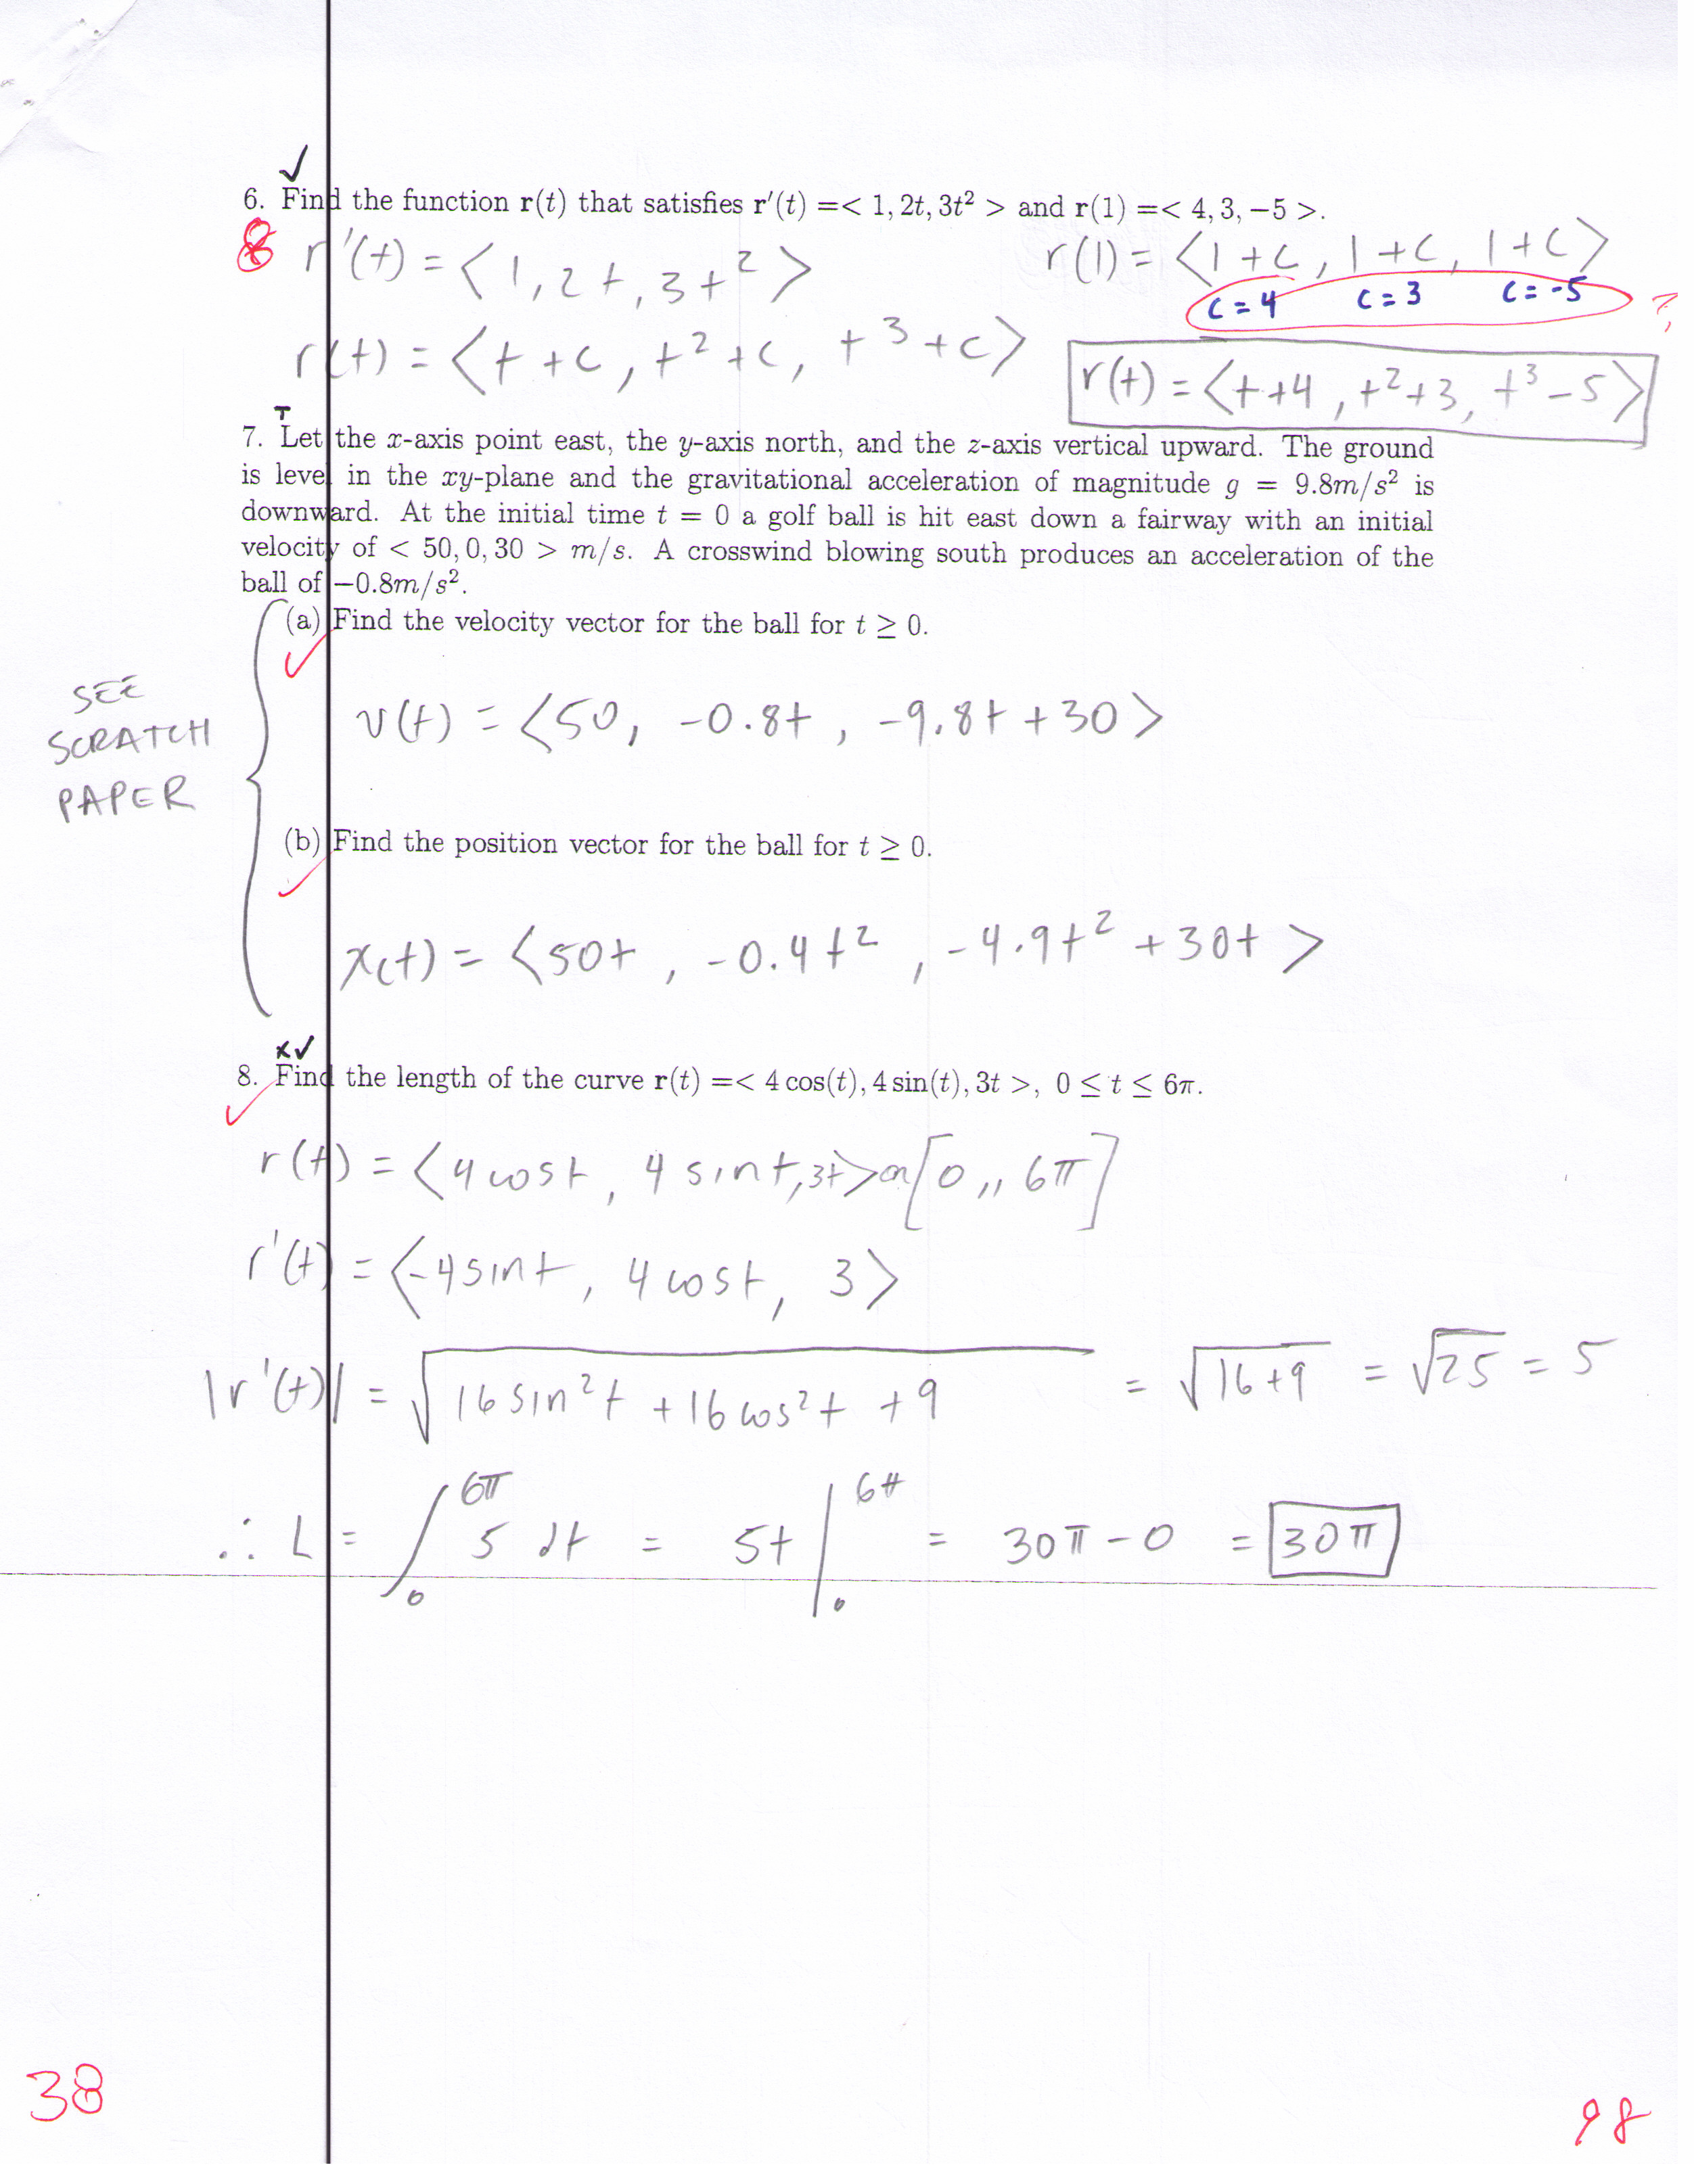 ✓
6. Find the function r(t) that satisfies r′(t) =< 1, 2t, 3t² > and r(1) =< 4, 3, −5 >.
8 r'(t) = ⟨1, 2t, 3t²⟩
r(1) = ⟨1+c, 1+c, 1+c⟩
c=4 c=3 c=-5 ?
r(t) = ⟨t+c, t²+c, t³+c⟩
r(t) = ⟨t+4, t²+3, t³-5⟩
T
7. Let the x-axis point east, the y-axis north, and the z-axis vertical upward. The ground
is level in the xy-plane and the gravitational acceleration of magnitude g = 9.8m/s² is
downward. At the initial time t = 0 a golf ball is hit east down a fairway with an initial
velocity of < 50, 0, 30 > m/s. A crosswind blowing south produces an acceleration of the
ball of −0.8m/s².
(a) Find the velocity vector for the ball for t ≥ 0.
✓
SEE
SCRATCH
PAPER
v(t) = ⟨50, -0.8t, -9.8t+30⟩
(b) Find the position vector for the ball for t ≥ 0.
✓
x(t) = ⟨50t, -0.4t², -4.9t²+30t⟩
x✓
8. Find the length of the curve r(t) =< 4 cos(t), 4 sin(t), 3t >, 0 ≤ t ≤ 6π.
✓
r(t) = ⟨4cost, 4sint,3t⟩on[0,, 6π]
r'(t) = ⟨-4sint, 4cost, 3⟩
|r'(t)| = √(16sin²t + 16cos²t + 9) = √(16+9) = √25 = 5
∴ L = ∫₀^6π 5 dt = 5t |₀^6π = 30π - 0 = 30π
38
98